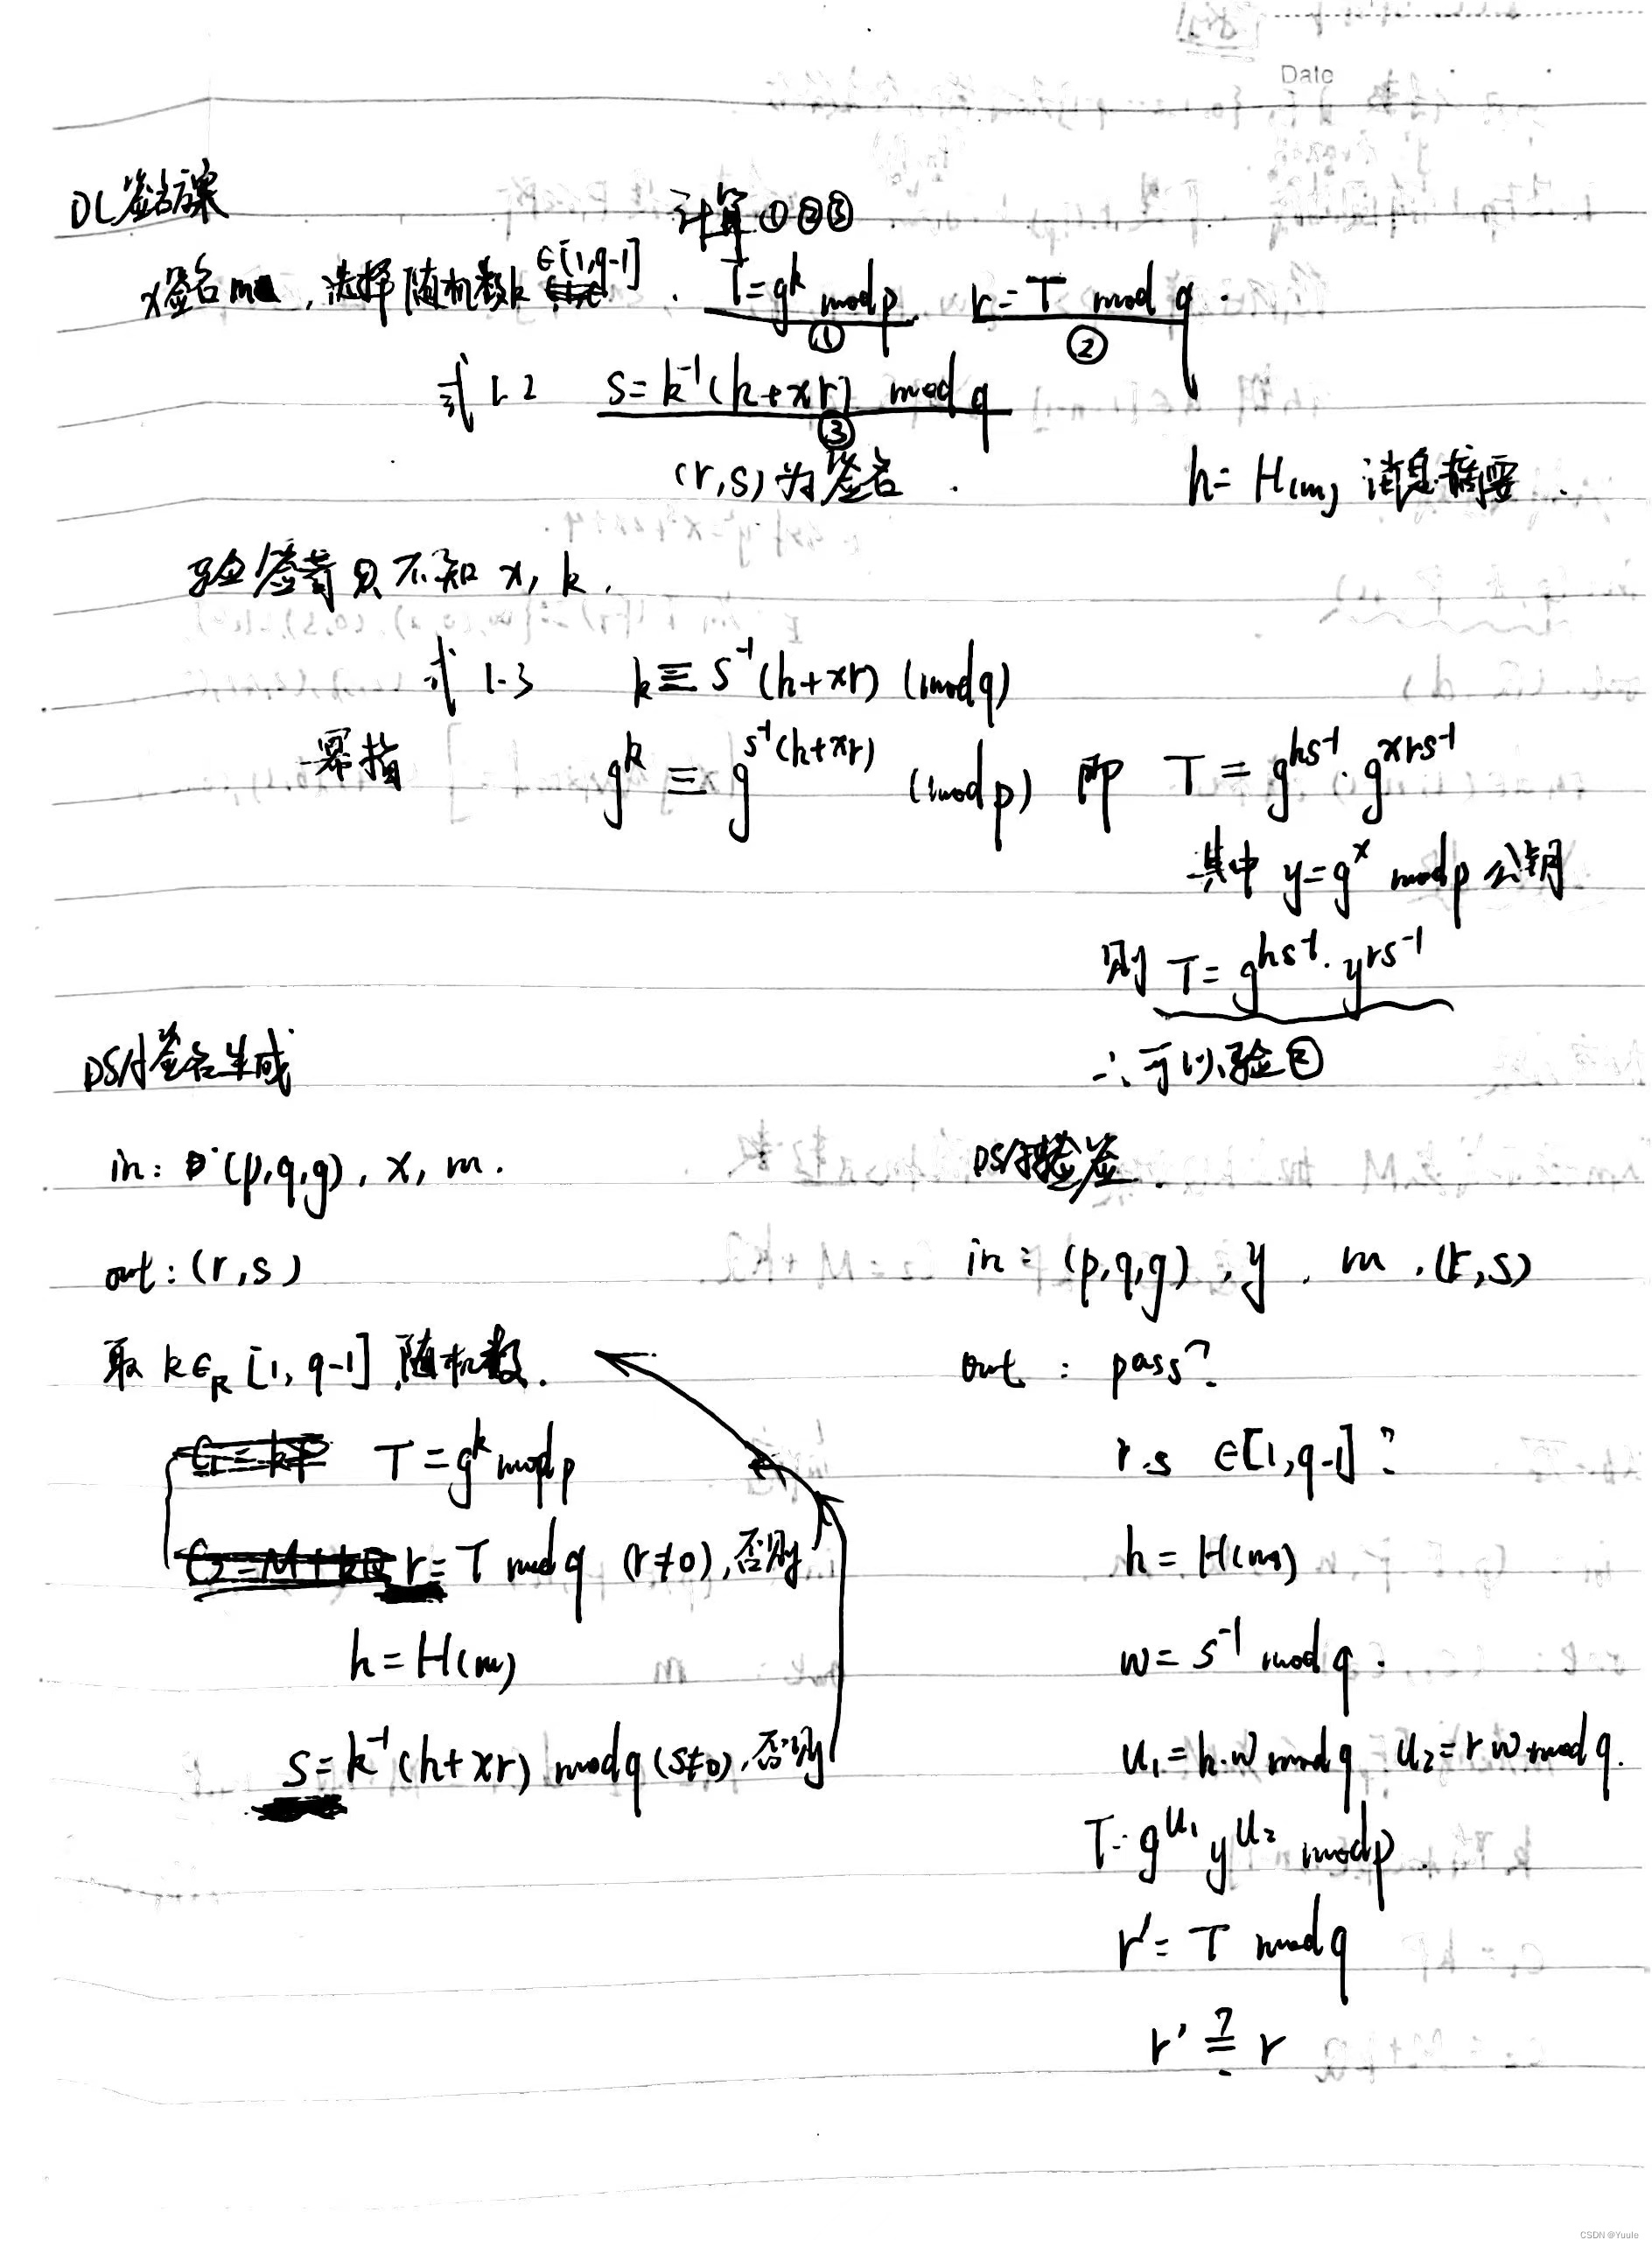 Date
DL签名方案
计算①②③
x签名m,选择随机数k ∈[1,q-1]. T=g^k mod p ① r=T mod q. ②
式1-2 s=k^-1(h+xr) mod q ③
(r,s)为签名. h=H(m) 消息摘要.
验签者只不知 x, k.
式1-3 k≡s^-1(h+xr) (mod q)
幂指 g^k≡g^s^-1(h+xr) (mod p) 即 T=g^hs^-1·g^xrs^-1
其中 y=g^x mod p 公钥
则 T=g^hs^-1·y^rs^-1
∴可以验②
DSA签名生成
in: (p,q,g), x, m.
out: (r,s)
取 k∈R [1, q-1] 随机数.
C1=kP T=g^k mod p
C2=M+kQ r=T mod q (r≠0),否则
h=H(m)
s=k^-1(h+xr) mod q (s≠0),否则
DSA验签.
in: (p,q,g), y, m, (r,s)
out: pass?
r.s ∈[1,q-1]?
h=H(m)
w=s^-1 mod q.
u1=h·w mod q u2=rw mod q.
T=g^u1 y^u2 mod p.
r'=T mod q
r'≟r
CSDN @Yuule